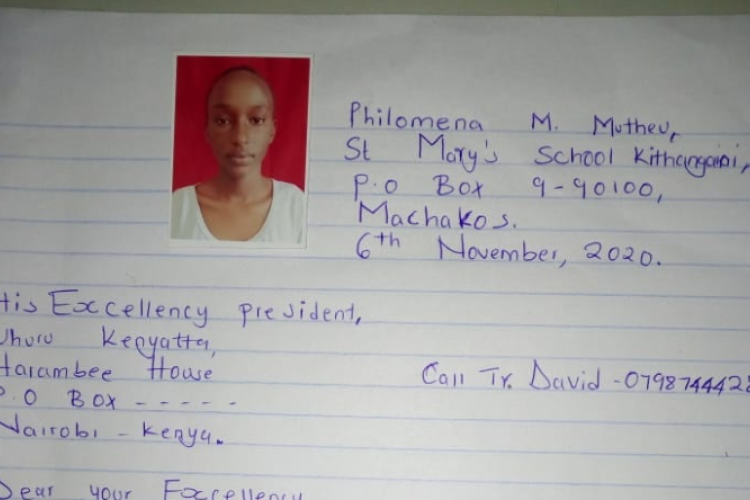 Philomena M. Mutheu,
St Mary's School Kithangaini,
P.O Box 9-90100,
Machakos.
6th November, 2020.
His Excellency president,
Uhuru Kenyatta,
Harambee House
P.O BOX - - - - -
Nairobi - Kenya.
Call Tr. David - 079874442
Dear your Excellency